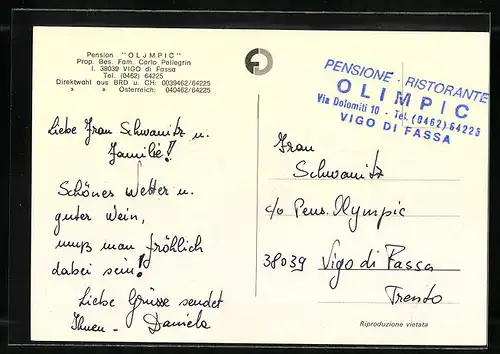 Pension "OLJMPIC"
Prop. Bes. Fam. Carlo Pellegrin
I. 38039 VIGO di Fassa
Tel. (0462) 64225
Direktwahl aus BRD u. CH: 0039462/64225
» » Österreich: 040462/64225
PENSIONE - RISTORANTE
OLIMPIC
Via Dolomiti 10 - Tel. (0462) 64225
VIGO DI FASSA
Liebe Frau Schwanitz u.
Familie!
Schönes Wetter u.
guter Wein,
muß man fröhlich
dabei sein!
Liebe Grüsse sendet
Ihnen - Daniela
Frau
Schwanitz
c/o Pens. Olympic
38039 Vigo di Fassa
Trento
Riproduzione vietata